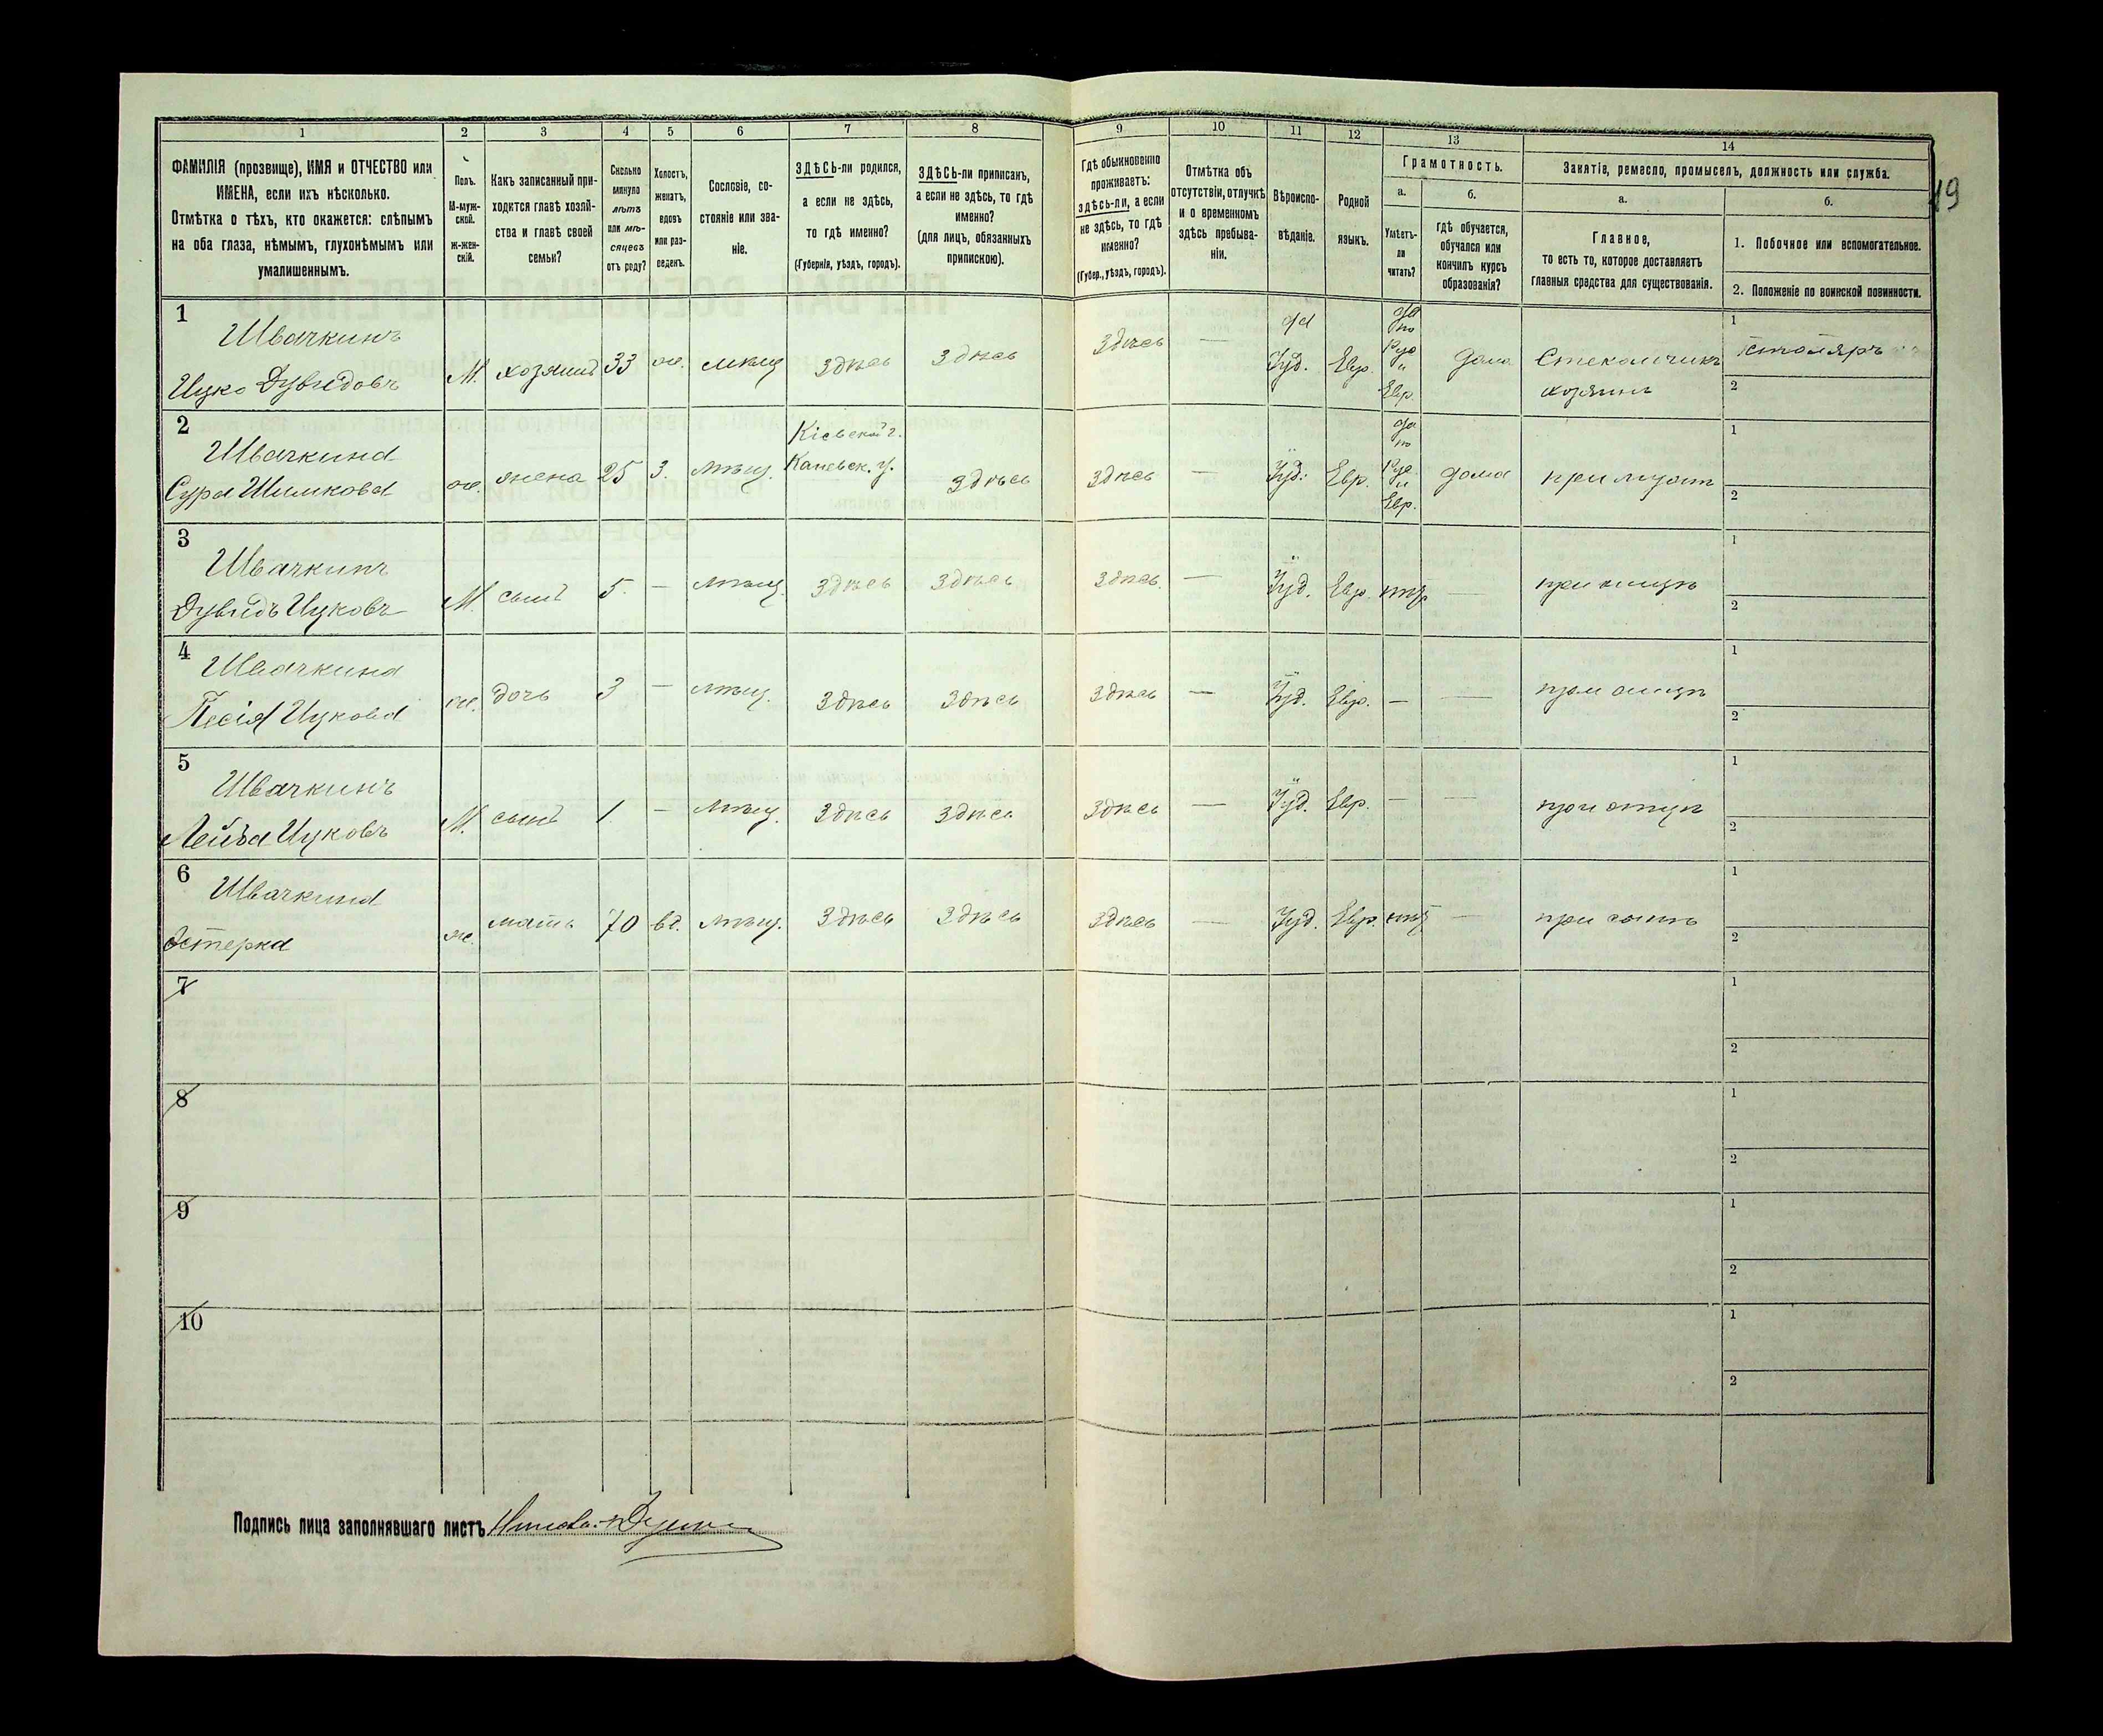 1 2 3 4 5 6 7 8 9 10 11 12 13 14
ФАМИЛІЯ (прозвище), ИМЯ и ОТЧЕСТВО или
ИМЕНА, если ихъ нѣсколько.
Отмѣтка о тѣхъ, кто окажется: слѣпымъ
на оба глаза, нѣмымъ, глухонѣмымъ или
умалишеннымъ.
Полъ.
М-муж-
ской.
Ж-жен-
скій.
Какъ записанный при-
ходится главѣ хозяй-
ства и главѣ своей
семьи?
Сколько
минуло
лѣтъ
или мѣ-
сяцевъ
отъ роду?
Холостъ,
женатъ,
вдовъ
или раз-
веденъ.
Сословіе, со-
стояніе или зва-
ніе.
ЗДѢСЬ-ли родился,
а если не здѣсь,
то гдѣ именно?
(Губернія, уѣздъ, городъ).
ЗДѢСЬ-ли приписанъ,
а если не здѣсь, то гдѣ
именно?
(для лицъ, обязанныхъ
припискою).
Гдѣ обыкновенно
проживаетъ:
здѣсь-ли, а если
не здѣсь, то гдѣ
именно?
(Губер., уѣздъ, городъ).
Отмѣтка объ
отсутствіи, отлучкѣ
и о временномъ
здѣсь пребыва-
ніи.
Вѣроиспо-
вѣданіе.
Родной
языкъ.
Грамотность.
а.
Умѣетъ-
ли
читать?
б.
гдѣ обучается,
обучался или
кончилъ курсъ
образованія?
Занятіе, ремесло, промыселъ, должность или служба.
а.
Главное,
то есть то, которое доставляетъ
главныя средства для существованія.
б.
1. Побочное или вспомогательное.
2. Положеніе по воинской повинности.
19
1
Швачкинъ
Ицко Дувидовъ
М. хозяинъ 33 ж. мѣщ здѣсь здѣсь здѣсь — Іуд. Евр.
да
по
Рус
и
Евр.
дома
Стекольщикъ
хозяинъ
1 столяръ
2
2
Швачкина
Сура Шимкова
ж. жена 25 З. мѣщ.
Кіевской г.
Каневск. у.
здѣсь здѣсь — Іуд. Евр.
да
по
Рус.
и
Евр.
дома при мужѣ
1
2
3
Швачкинъ
Дувидъ Ицковъ
М. сынъ 5. — мѣщ. здѣсь здѣсь здѣсь — Іуд. Евр. нѣт — при отцѣ
1
2
4
Швачкина
Песія Ицкова
ж. дочь 3 — мѣщ. здѣсь здѣсь здѣсь — Іуд. Евр. — — при отцѣ
1
2
5
Швачкинъ
Лейба Ицковъ
М. сынъ 1 — мѣщ. здѣсь здѣсь здѣсь — Іуд. Евр. — — при отцѣ
1
2
6
Швачкина
Эстерка
ж. мать 70 вд. мѣщ. здѣсь здѣсь здѣсь — Іуд. Евр. нѣт — при сынѣ
1
2
7
1
2
8
1
2
9
1
2
10
1
2
Подпись лица заполнявшаго листъ